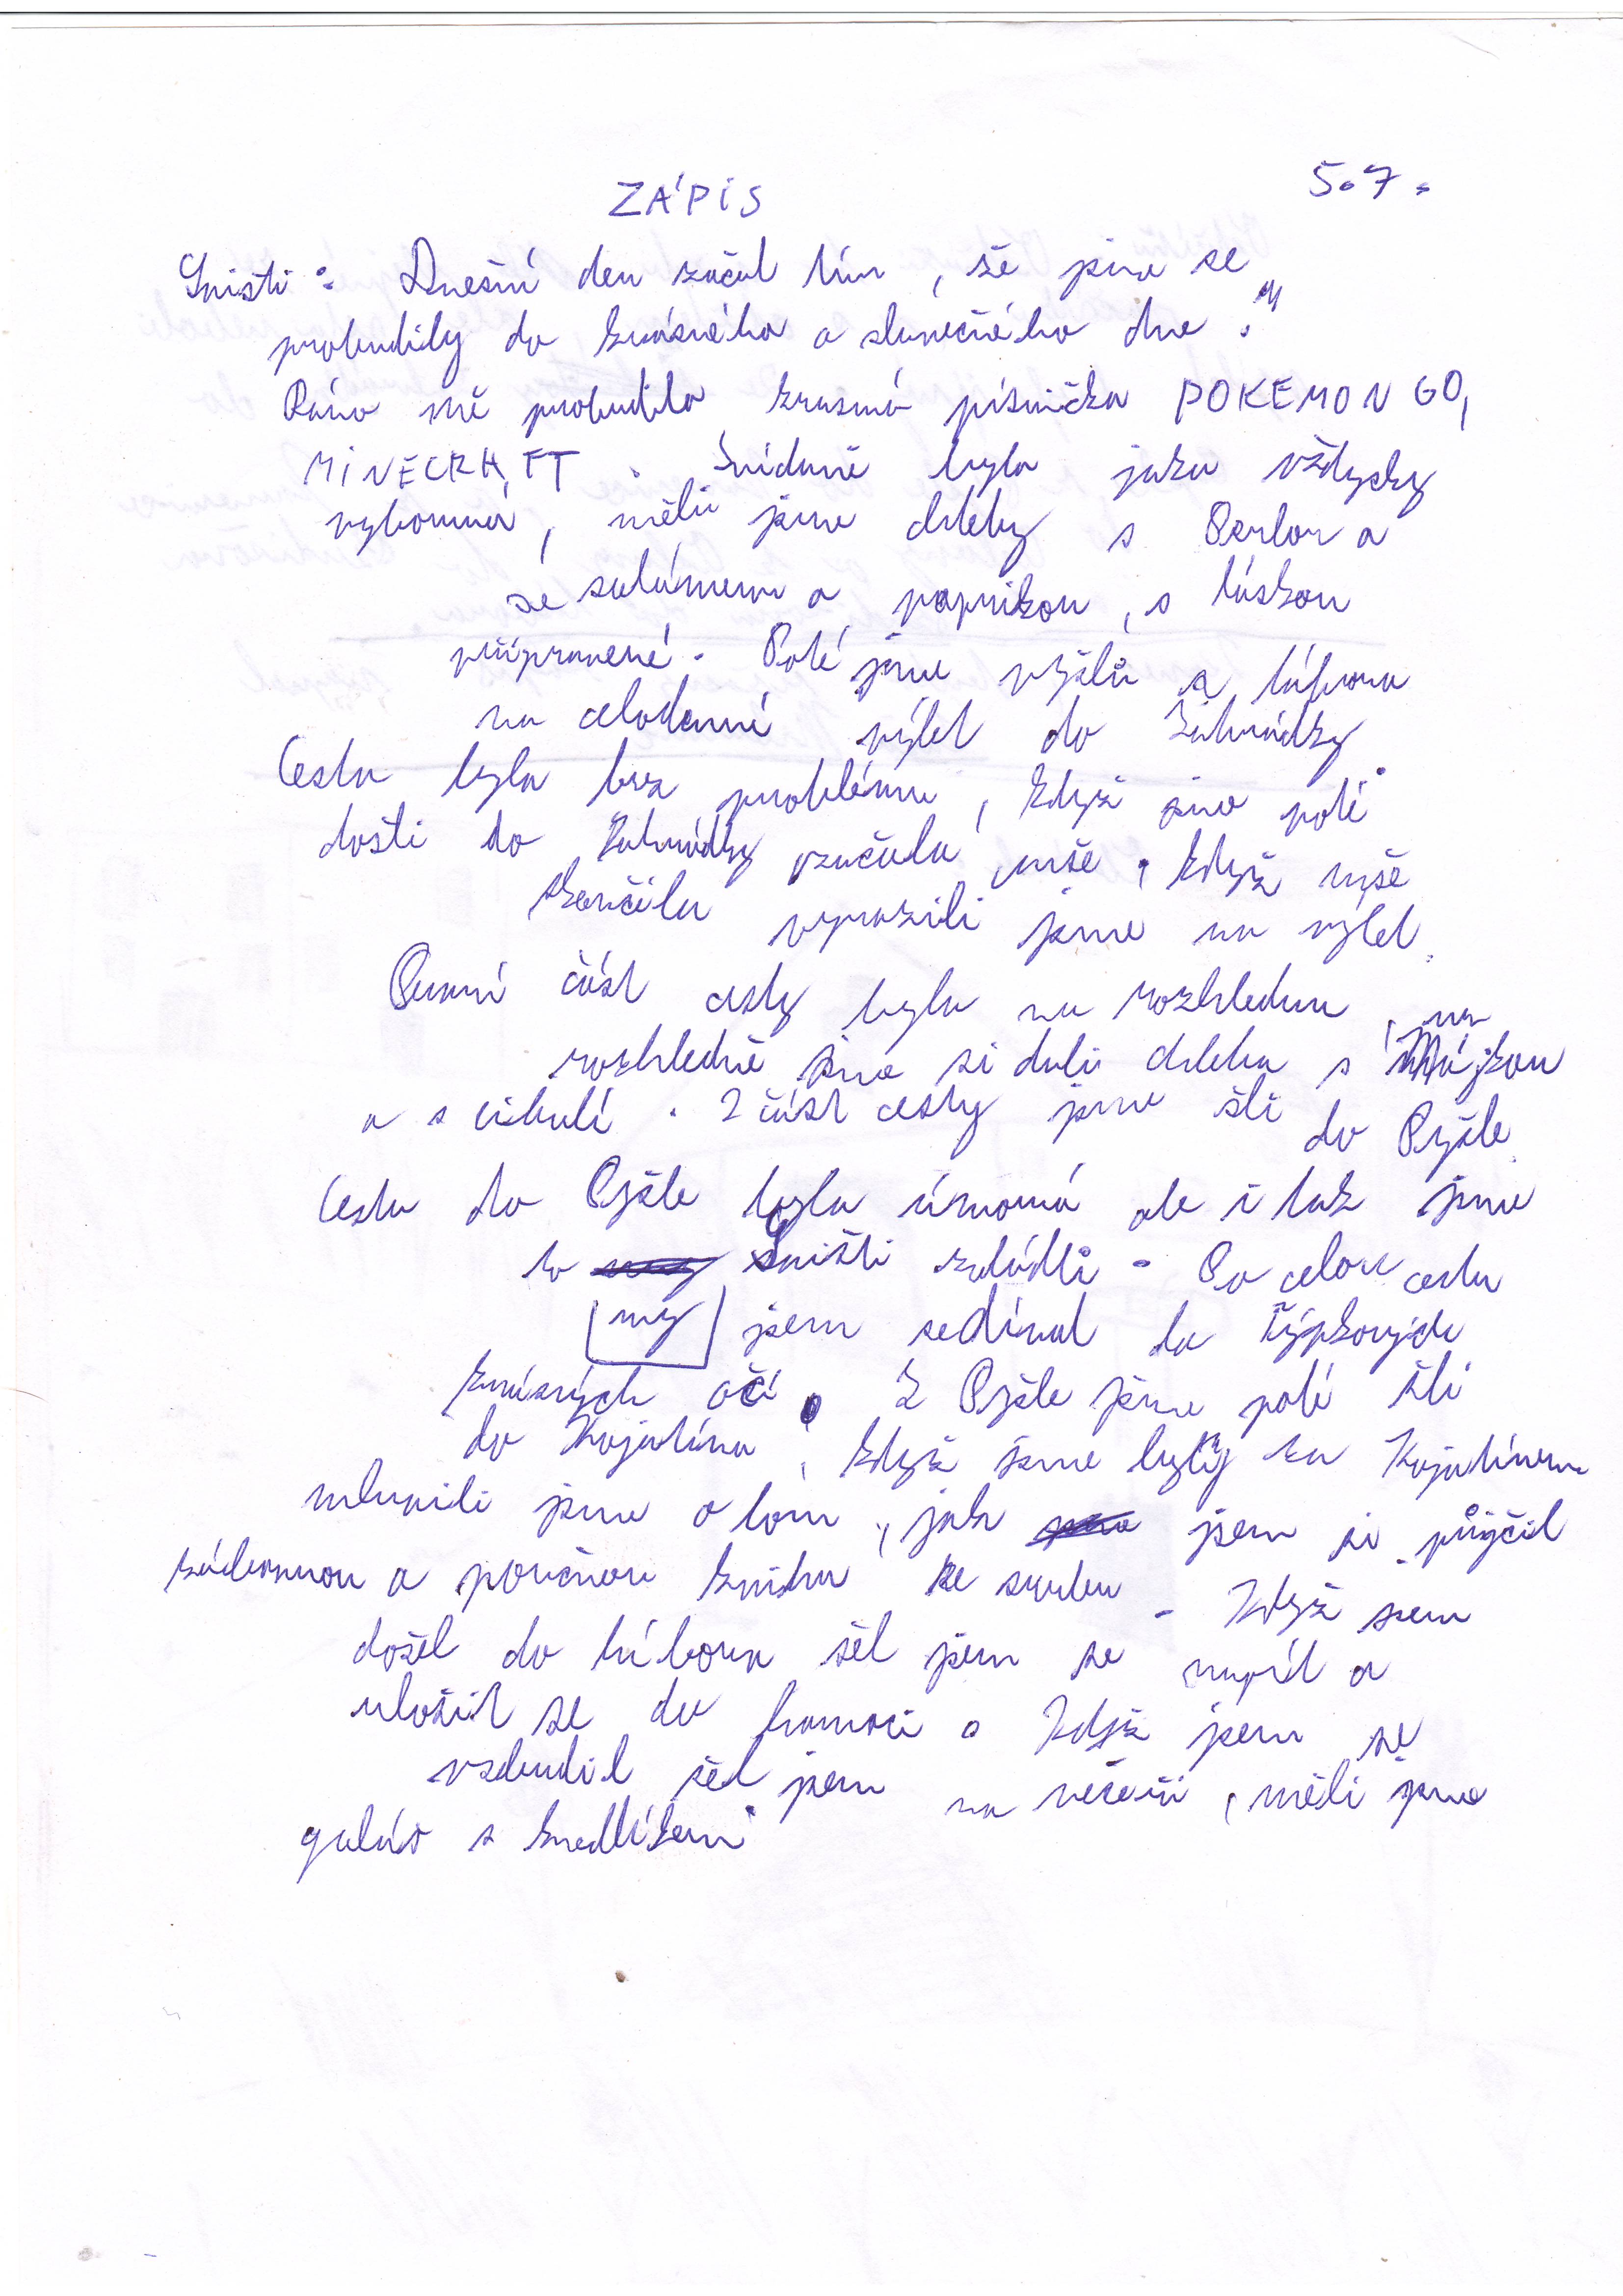 ZÁPIS 5.7.
Sništi: Dnešní den začal tím, že jsme se
probudily do krásného a slunečného dne.
Ráno mě probudila krasná písnička POKEMON GO,
MINECRAFT. Snídaně byla jako vždycky
vyborná, měli jsme chleby s Perlou a
se salámem a paprikou, s láskou
připravené. Poté jsme vyšli z tábora
na celodenní výlet do Zahrádky.
Cesta byla bez problému, když sme poté
došli do Zahrádky začala mše, když mše
skončila vyrazili jsme na výlet.
První část cesty byla na rozhlednu, na
rozhledně sme si dali chleba s Májkou
a s cibulí. 2 část cesty jsme šli do Pyšle.
Cesta do Pyšle byla únavná ale i tak jsme
to Sništi zvládli. Po celou cestu
my jsem se díval do Týpkových
krásných očí. Z Pyšle jsme poté šli
do Kojatína, když jsme byly za Kojatínem
mluvili jsme o tom, jak jsem si půjčil
zábavnou a poučnou knihu ze srubu. Když sem
došel do tábora šel jsem se napít a
uložit se do hamoci. Když jsem se
vzbudil šel jsem na večeři, měli jsme
guláš s knedlíkem.